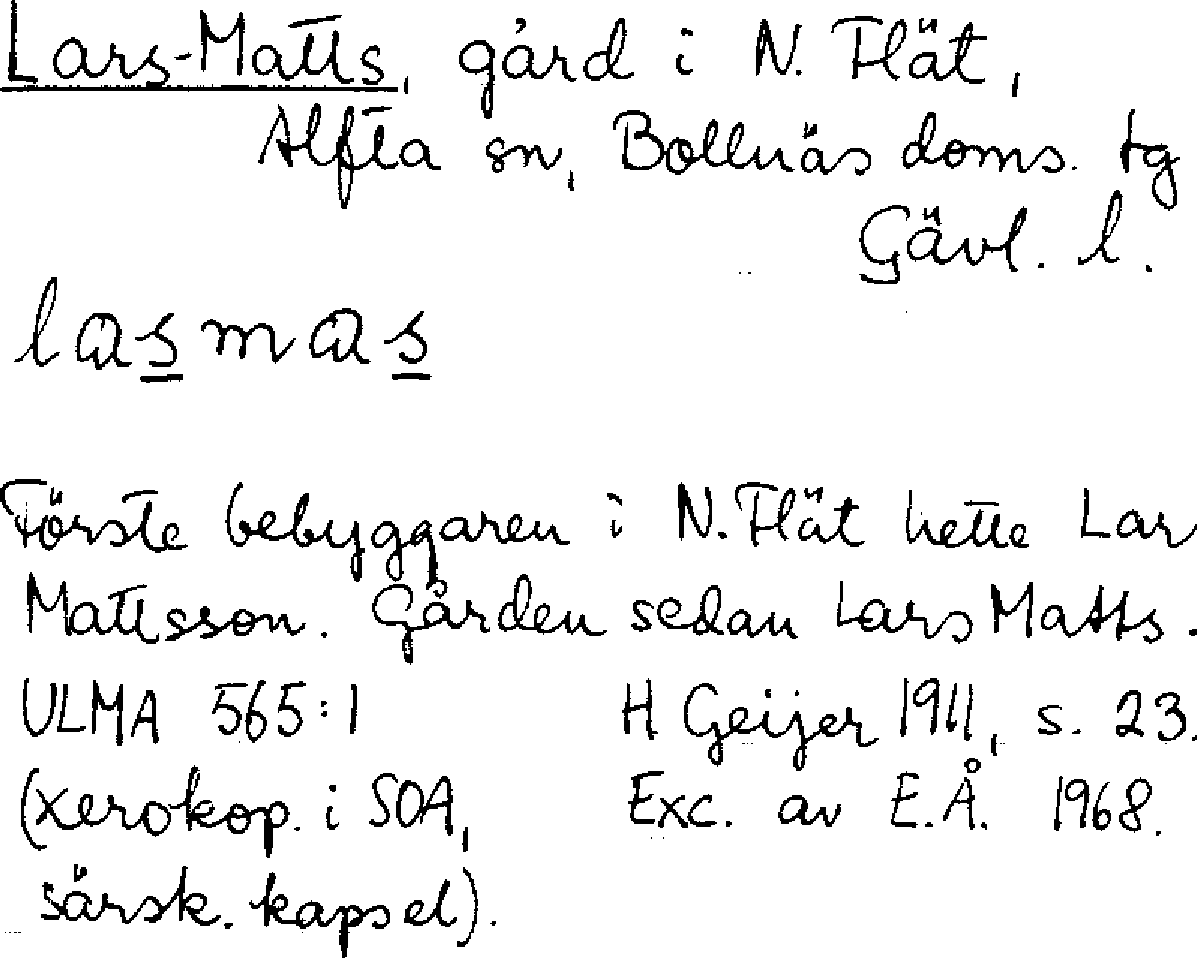 Lars-Matts, gård i N. Flät,
Alfta sn, Bollnäs doms. tg
Gävl. l.
lasmas
Förste bebyggaren i N. Flät hette Lar
Mattsson. Gården sedan Lars Matts.
ULMA 565:1 H Geijer 1911, s. 23.
(xerokop. i SOA, Exc. av E.Å. 1968.
särsk. kapsel).